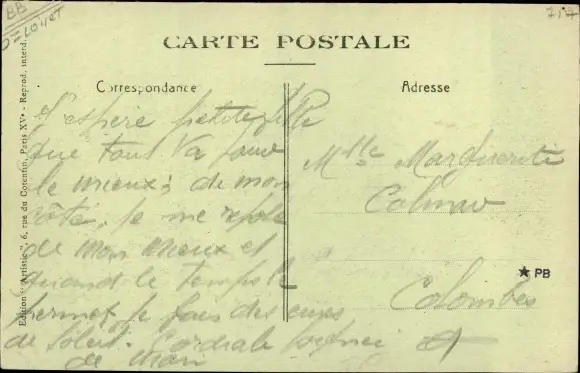 BB
D=Loiret
717
CARTE POSTALE
Correspondance
Adresse
J'espère petite fille
que tout va pour
le mieux; de mon
côté, je me repose
de mon mieux et
quand le temps le
permet je fais des cures
de soleil. Cordiale
de main
Mlle Marguerite
Colombes
★ PB
Edition "Artistic", 6, rue du Cotentin, Paris XVe - Reprod. interd.